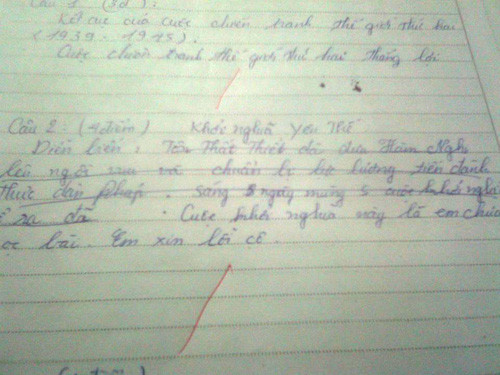 Câu 1 (3đ):
Kết cục của cuộc chiến tranh thế giới thứ hai
(1939 - 1945).
Cuộc chiến tranh thế giới thứ hai thắng lợi
Câu 2: (4điểm) Khởi nghĩa Yên Thế
Diễn biến: Tôn Thất Thuyết đã đưa Hàm Nghi
lên ngôi vua và chuẩn bị lực lượng tiến đánh
thực dân Pháp. sáng 5 ngày mùng 5 cuộc khởi nghĩa
ra đã Cuộc khởi nghĩa này là em chưa
học bài. Em xin lỗi cô.